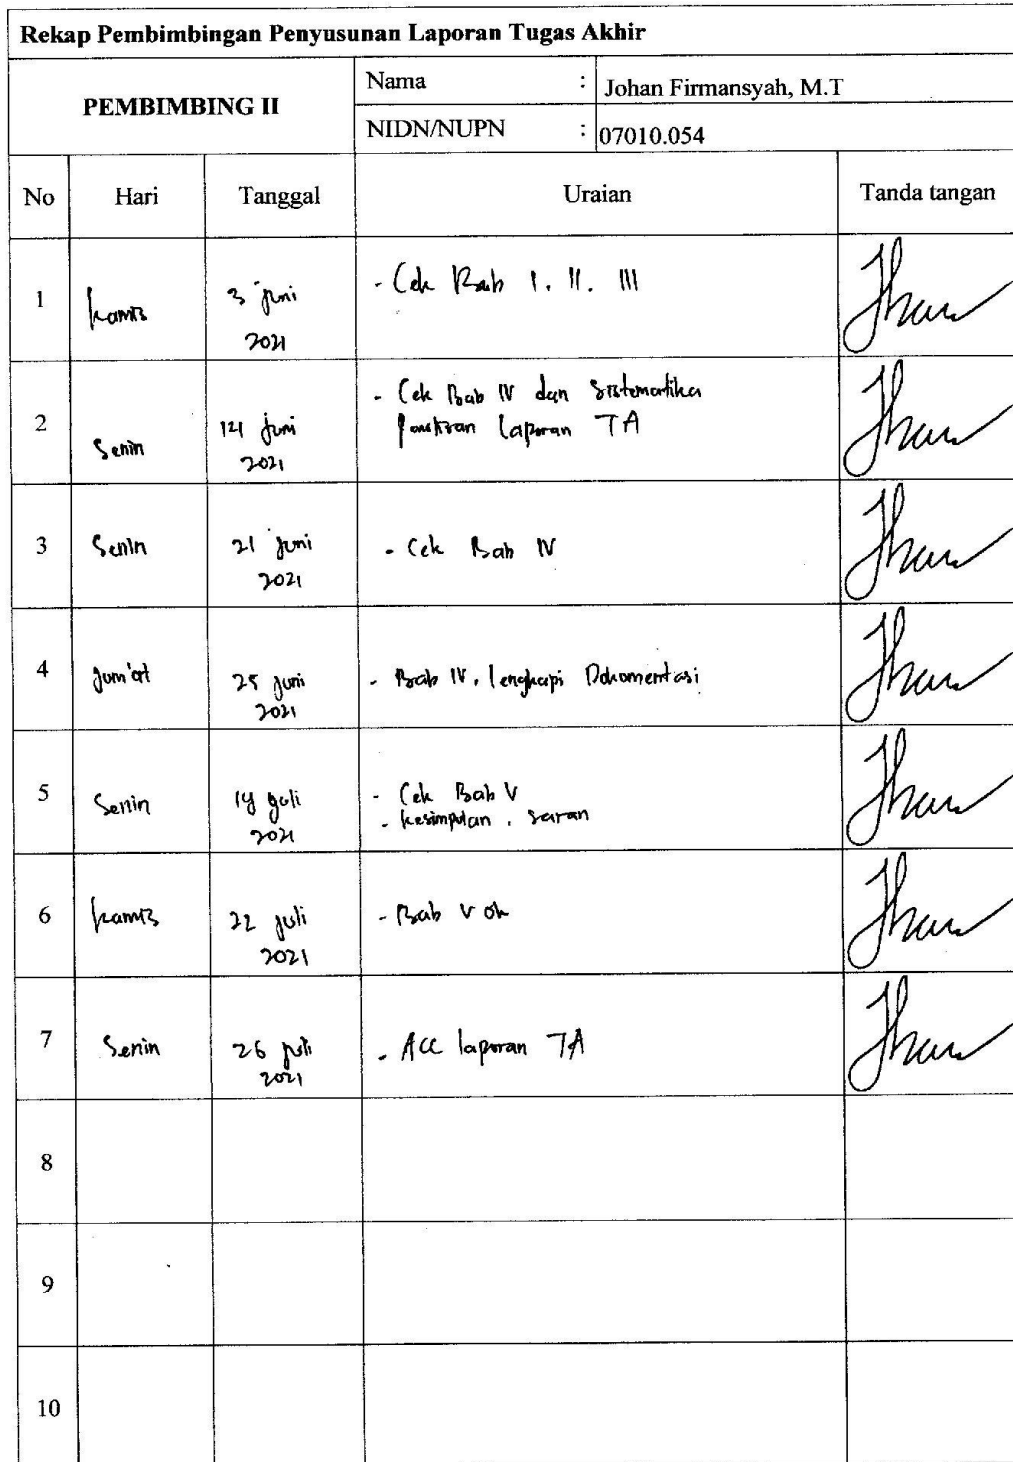 Rekap Pembimbingan Penyusunan Laporan Tugas Akhir
PEMBIMBING II
Nama : Johan Firmansyah, M.T
NIDN/NUPN : 07010.054
No Hari Tanggal Uraian Tanda tangan
1 Kamis 3 juni 2021 - Cek Bab I. II. III
2 Senin 14 juni 2021 - Cek Bab IV dan Sistematika
Laporan TA
3 Senin 21 juni 2021 - Cek Bab IV
4 Jum'at 25 juni 2021 - Bab IV, lengkapi Dokumentasi
5 Senin 19 juli 2021 - Cek Bab V
- kesimpulan, saran
6 Kamis 22 juli 2021 - Bab V ok
7 Senin 26 juli 2021 - Acc laporan TA
8
9
10